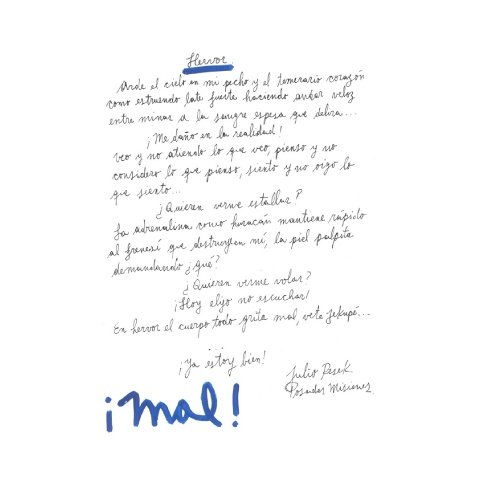 Hervor
Arde el cielo en mi pecho y el temerario corazón
como estruendo late fuerte haciendo andar veloz
entre minas a la sangre espesa que delira...
¡Me daño en la realidad!
veo y no atiendo lo que veo, pienso y no
considero lo que pienso, siento y no oigo lo
que siento...
¿Quieren verme estallar?
La adrenalina como huracán mantiene rápido
al frenesí que destruyen mí, la piel palpita
demandando ¿qué?
¿Quieren verme volar?
¡Hoy elijo no escuchar!
En hervor el cuerpo todo grita mal, veta
...
¡ya estoy bien!
Julio
Posadas Misiones
¡mal!